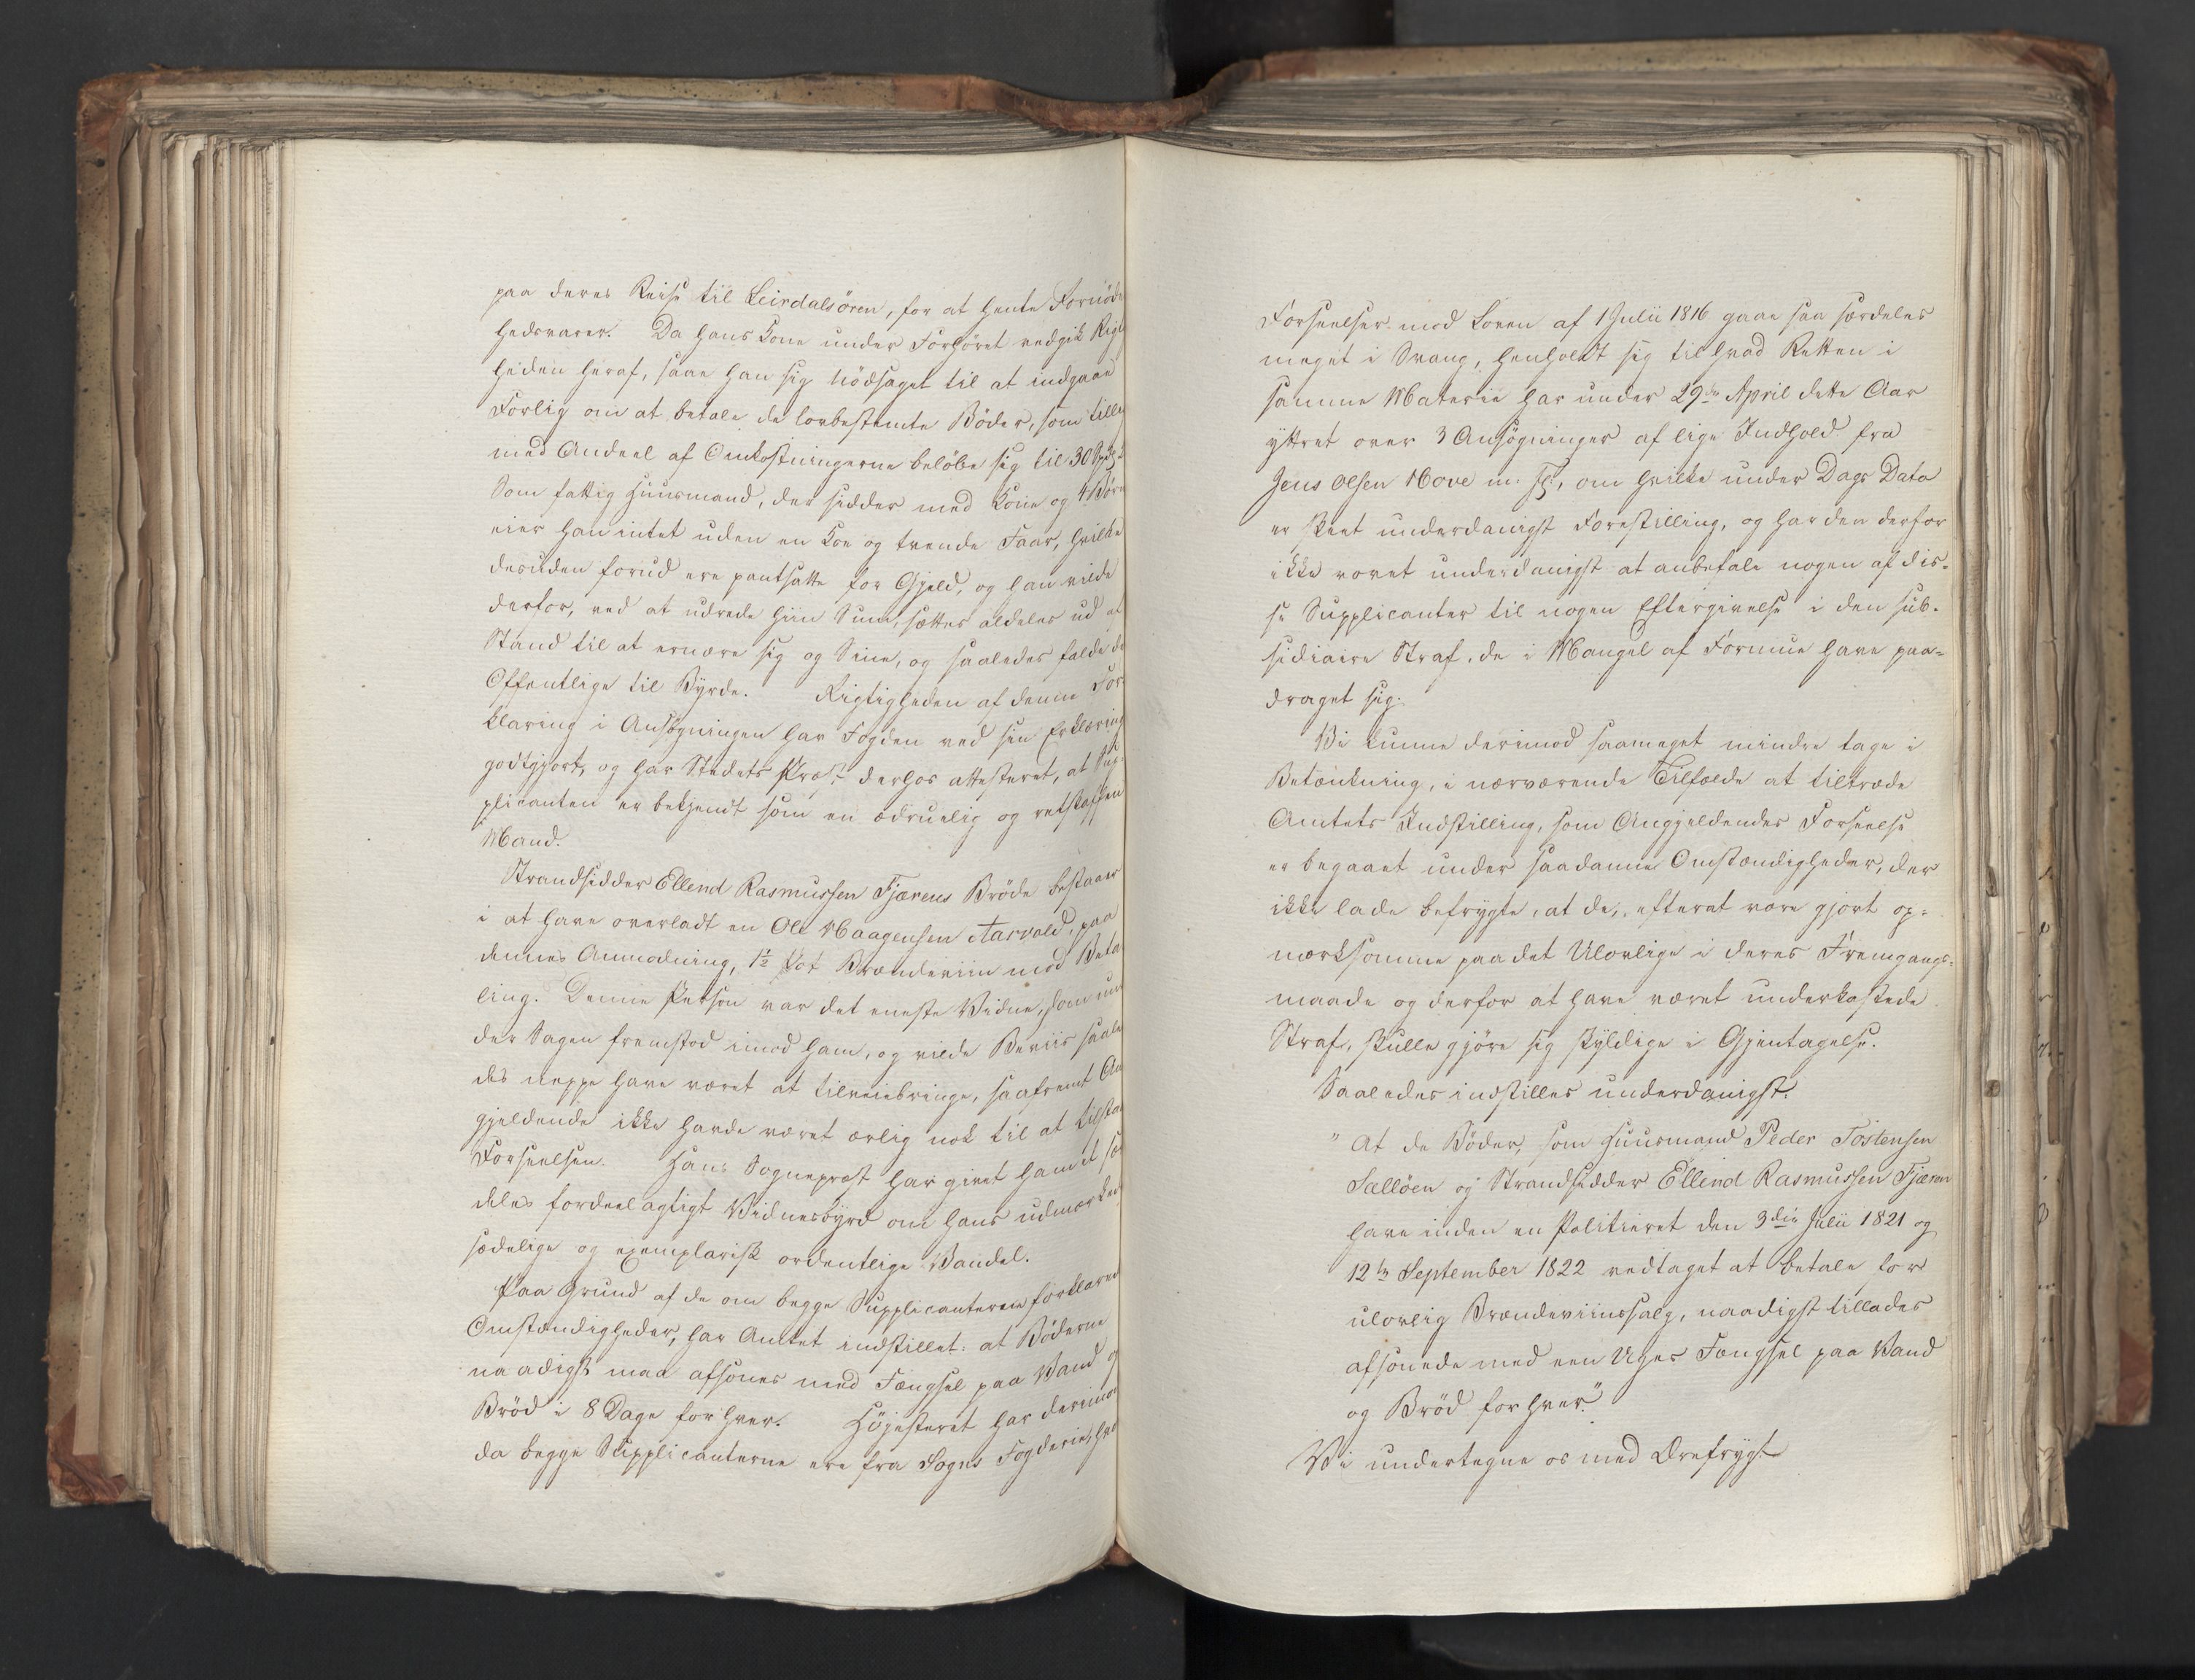 paa deres Reise til Leirdalsören, for at hente Fornöden
hedsvarer. Da hans Kone under Forhöret vedgik Rigt
heden heraf, saae han sig nödsaget til at indgaae
Forlig om at betale de lovbestemte Böder, som tillig
med Andeel af Omkostningerne belöbe sig til 30 Spd.
Som fattig Huusmand, der sidder med Kone og 4 Börn
eier han intet uden en Koe og trende Faar, hvilke
desuden forud ere pantsatte for Gjeld, og han vilde
derfor, ved at udrede hiin Sum, sættes aldeles ud af
Stand til at ernære sig og Sine, og saaledes falde de
Offentlige til Byrde. Rigtigheden af denne For
klaring i Ansögningen har Fogden ved sin Erklæring
godtgjort, og har Stedets Præst derhos attesteret, at Sup
plicanten er bekjendt som en ædruelig og retskaffen
Mand.
Strandsidder Ellend Rasmussen Fjærens Bröde bestaaer
i at have overladt en Ole Haagensen Aarvold, paa
dennes Anmodning, 1½ Pot Brændeviin mod Beta
ling. Denne Person var det eneste Vidne, som un
der Sagen fremstod imod ham, og vilde Beviis saale
des neppe have været at tilveiebringe, saafremt An
gjeldende ikke havde været ærlig nok til at tilstaa
Forseelsen. Hans Sognepræst har givet ham et sær
deles fordeelagtigt Vidnesbyrd om hans udmærked
sædelige og exemplarisk ordentlige Vandel.
Paa Grund af de om begge Supplicanterne forklarede
Omstændigheder, har Amtet indstillet: at Böderne
naadigst maa afsones med Fængsel paa Vand og
Bröd i 8 Dage for hver. Höjesteret har derimod
da begge Supplicanterne ere fra Sogns Fogderie, hvor
Forseelser mod Loven af 1 Julii 1816 gaae saa særdeles
meget i Svang, henholdt sig til hvad Retten i
samme Materie har under 29de April dette Aar
yttret over 3 Ansögninger af lige Indhold fra
Jens Olsen Hove m: fl:, om hvilke under Dags Dato
er skeet underdanigst Forestilling, og har den derfor
ikke vovet underdanigst at anbefale nogen af dis-
se Supplicanter til nogen Eftergivelse i den sub-
sidiaire Straf, de i Mangel af Formue have paa-
draget sig.
Vi kunne derimod saameget mindre tage i
Betænkning, i nærværende Tilfælde at tiltræde
Amtets Indstilling, som Angjeldendes Forseelse
er begaaet under saadanne Omstændigheder, der
ikke lade befrygte, at de, efterat være gjort op-
mærksomme paa det Ulovlige i deres Fremgangs-
maade og derfor at have været underkastede
Straf, skulle gjöre sig skyldige i Gjentagelse.
Saaledes indstilles underdanigst:
"At de Böder, som Huusmand Peder Tostensen
Sællöen og Strandsidder Ellend Rasmussen Fjæren
have inden en Politieret den 3die Julii 1821 og
12te September 1822 vedtaget at betale for
ulovlig Brændeviinssalg, naadigst tillades
afsonede med een Uges Fængsel paa Vand
og Bröd for hver."
Vi undertegne os med Ærefrygt